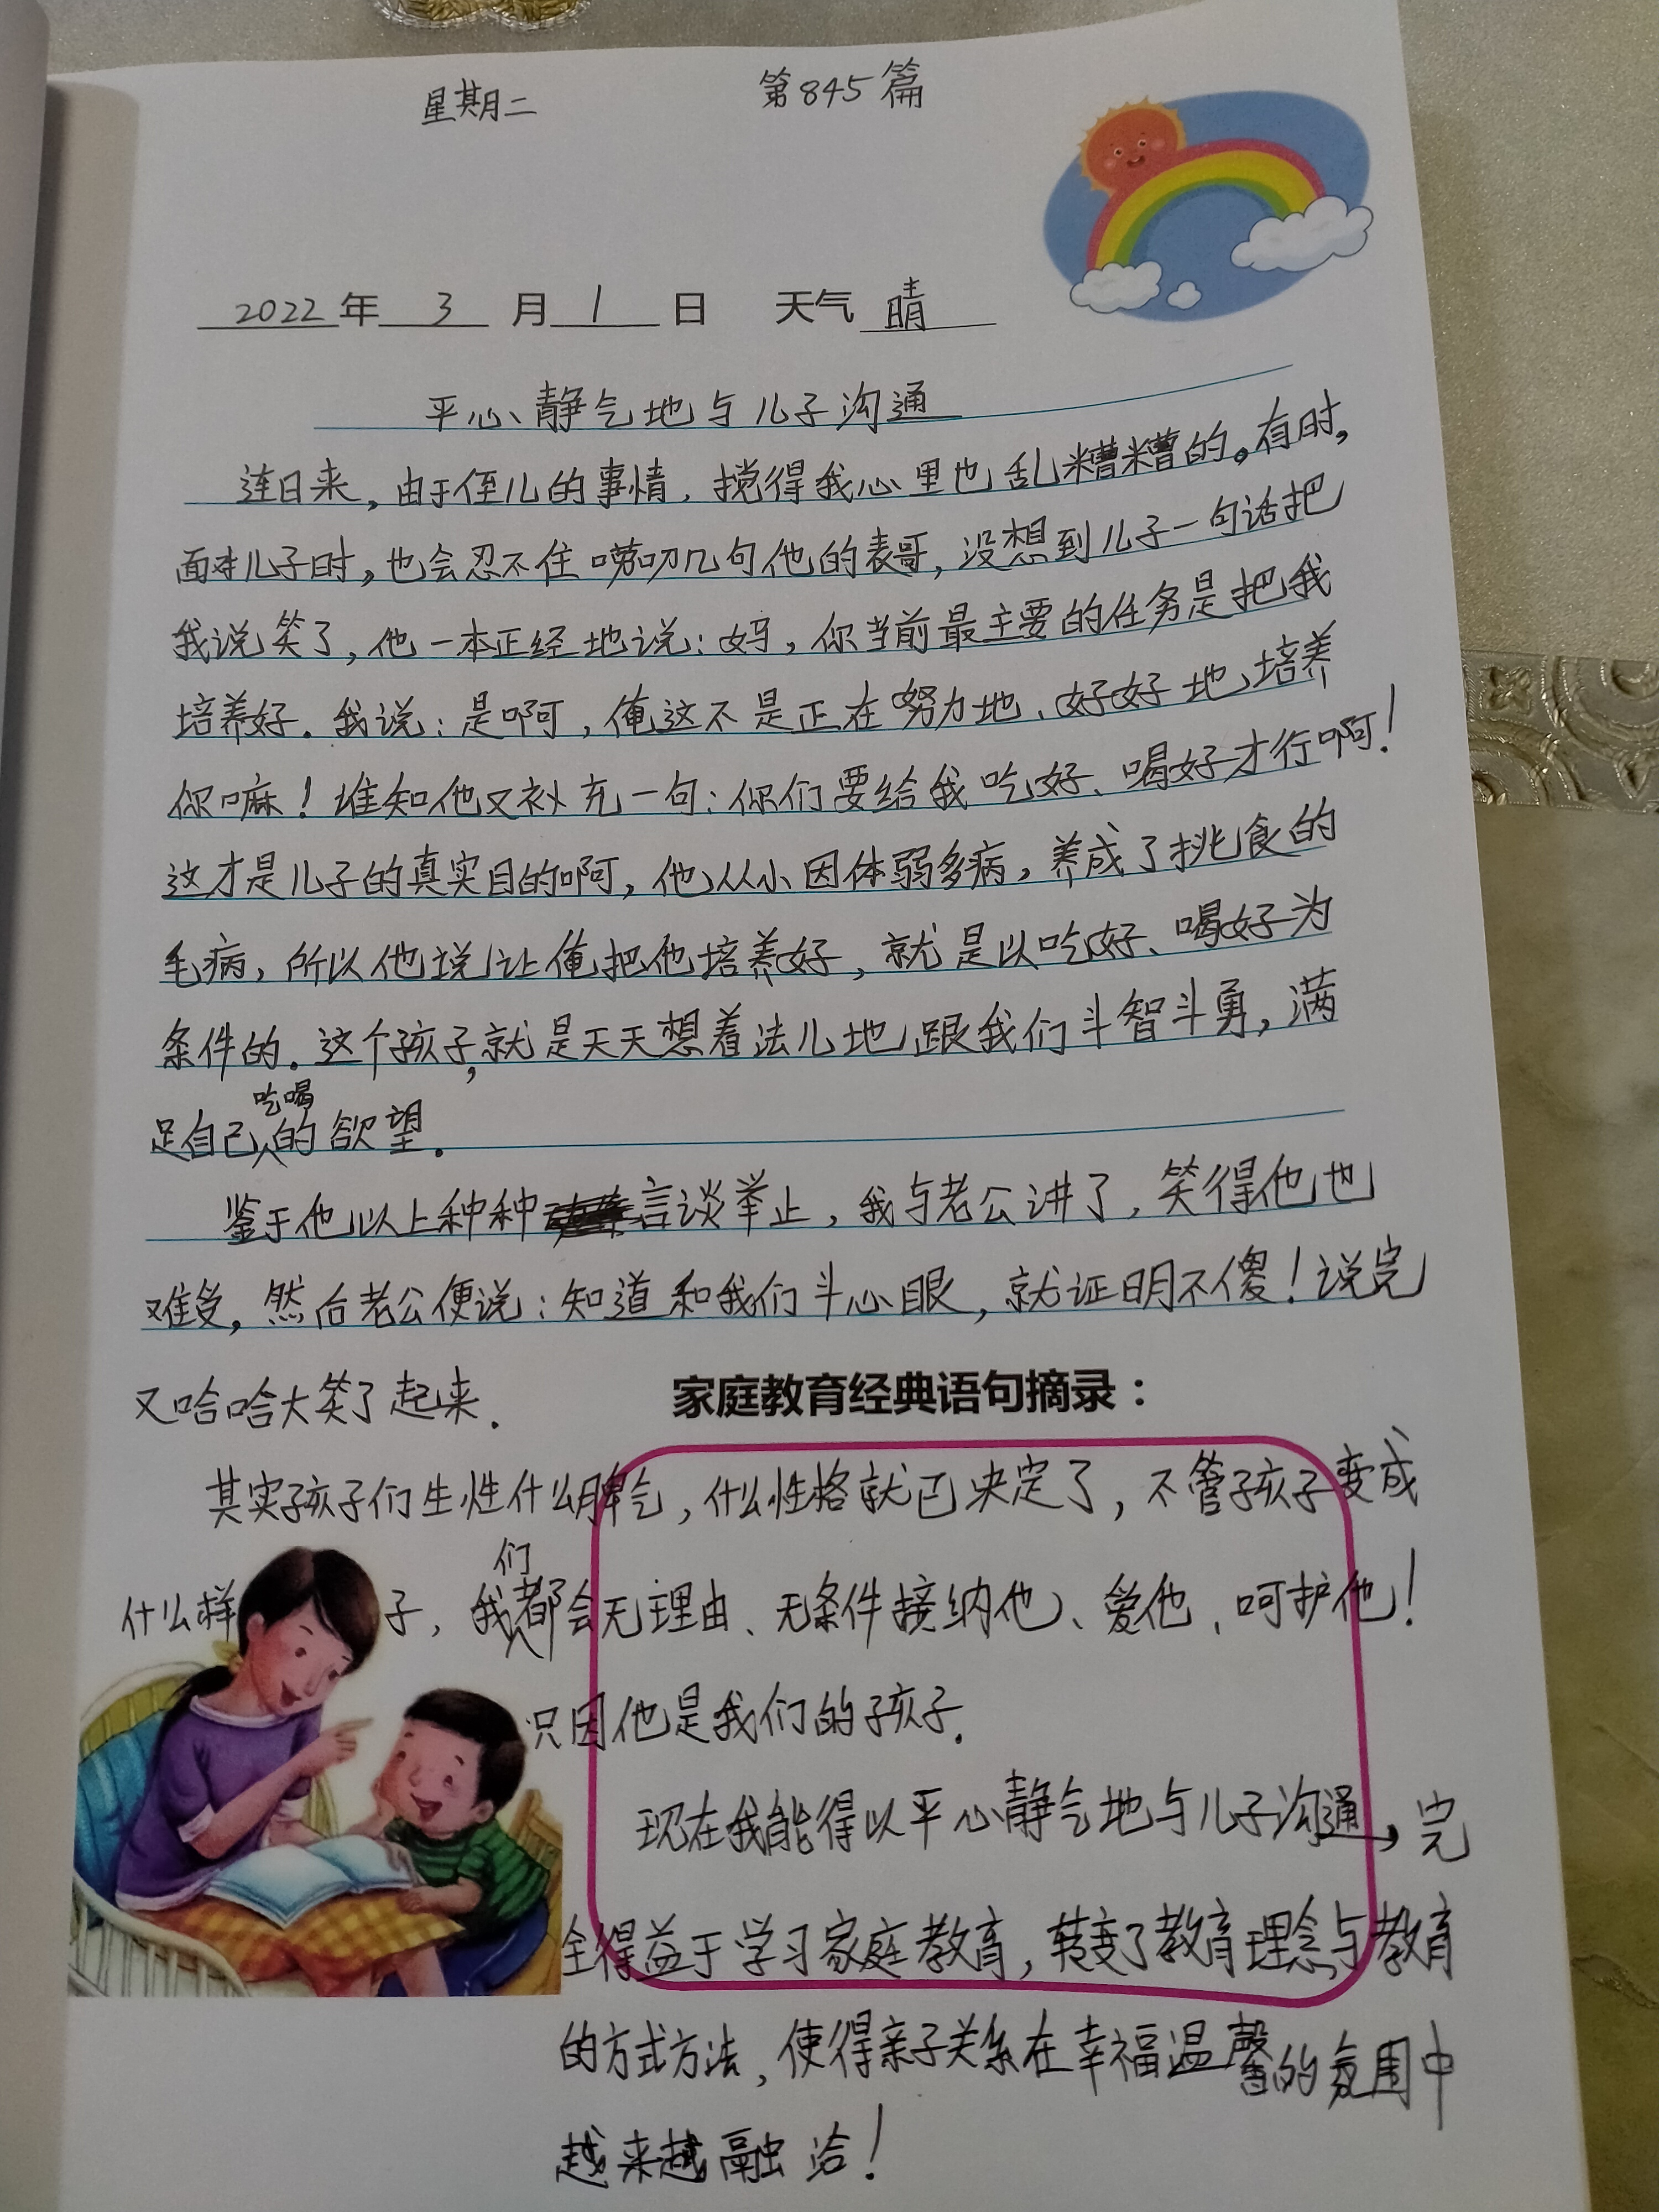 星期二 第845篇
2022年 3 月 1 日 天气 晴
平心静气地与儿子沟通
连日来，由于侄儿的事情，搅得我心里也乱糟糟的。有时，
面对儿子时，也会忍不住唠叨几句他的表哥，没想到儿子一句话把
我说笑了，他一本正经地说：妈，你当前最主要的任务是把我
培养好。我说：是啊，俺这不是正在努力地、好好地培养
你嘛！谁知他又补充一句：你们要给我吃好、喝好才行啊！
这才是儿子的真实目的啊，他从小因体弱多病，养成了挑食的
毛病，所以他说让俺把他培养好，就是以吃好、喝好为
条件的。这个孩子，就是天天想着法儿地跟我们斗智斗勇，满
足自己吃喝的欲望。
鉴于他以上种种言谈举止，我与老公讲了，笑得他也
难受，然后老公便说：知道和我们斗心眼，就证明不傻！说完
又哈哈大笑了起来。
家庭教育经典语句摘录：
其实孩子们生性什么脾气，什么性格就已决定了，不管孩子变成
什么样子，我们都会无理由、无条件接纳他、爱他、呵护他！
只因他是我们的孩子。
现在我能得以平心静气地与儿子沟通，完
全得益于学习家庭教育，转变了教育理念与教育
的方式方法，使得亲子关系在幸福温馨的氛围中
越来越融洽！